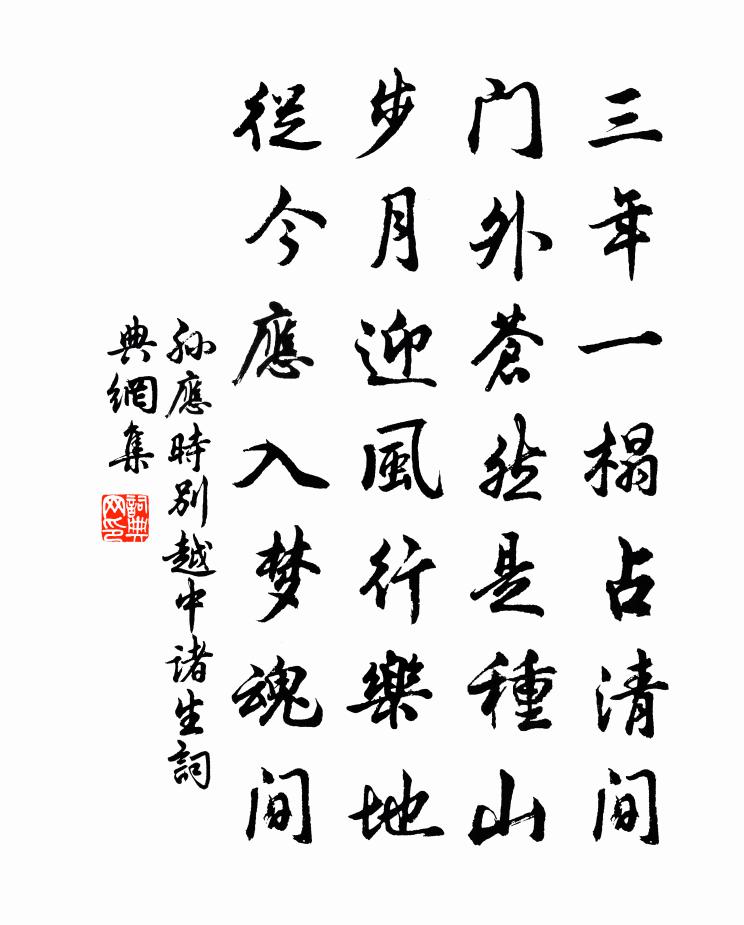 三年一榻占清间
门外蒼然是種山
步月迎風行樂地
從今應入梦魂间
孙應時别越中诸生詞
典網集
詞典
网印